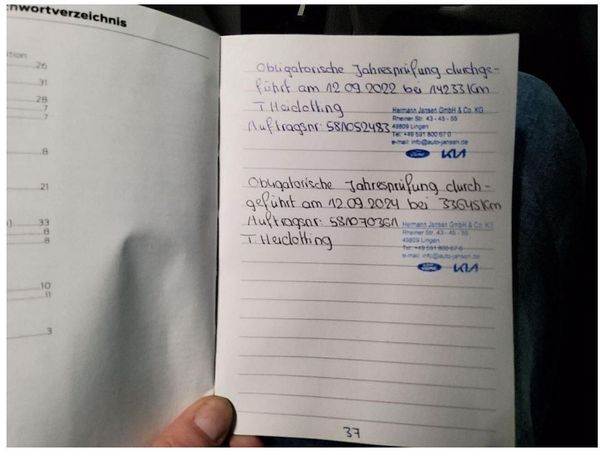 chwortverzeichnis
26
31
28
7
7
8
21
33
8
8
10
11
3
Obligatorische Jahresprüfung durchge-
führt am 12.09.2022 bei 14233Km
T. Heidotting
Auftragsnr: 581052483
Hermann Jansen GmbH & Co. KG
Rheiner Str. 43 - 45 - 55
49809 Lingen
Tel: +49 591 800 67 0
e-mail: info@auto-jansen.de
Ford KIA
Obligatorische Jahresprüfung durch-
geführt am 12.09.2024 bei 33645Km
Auftragsnr: 581070361
T. Heidotting
Hermann Jansen GmbH & Co. KG
Rheiner Str. 43 - 45 - 55
49809 Lingen
Tel: +49 591 800 67 0
e-mail: info@auto-jansen.de
Ford KIA
37